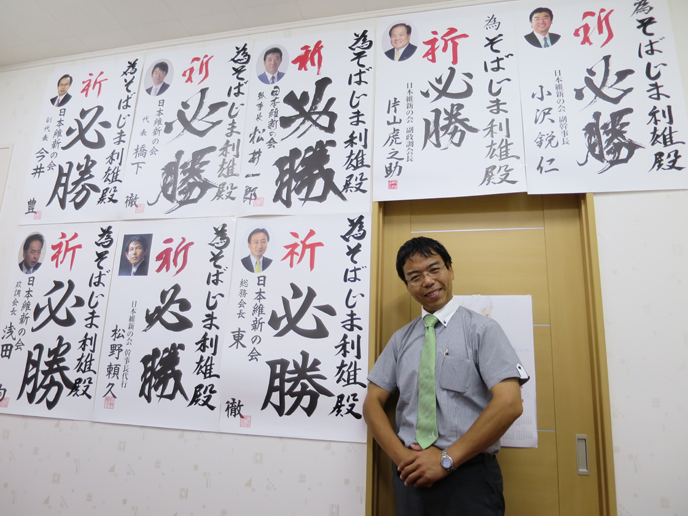 為そばじま利雄殿
祈
必勝
日本維新の会
副代表
今井 豊
為そばじま利雄殿
祈
必勝
日本維新の会
代表
橋下 徹
為そばじま利雄殿
祈
必勝
日本維新の会
幹事長
松井一郎
為そばじま利雄殿
祈
必勝
日本維新の会 副政調会長
片山虎之助
為そばじま利雄殿
祈
必勝
日本維新の会 副幹事長
小沢鋭仁
為そばじま利雄殿
祈
必勝
日本維新の会
政調会長
浅田 均
為そばじま利雄殿
祈
必勝
日本維新の会 幹事長代行
松野頼久
為そばじま利雄殿
祈
必勝
日本維新の会
総務会長
東 徹